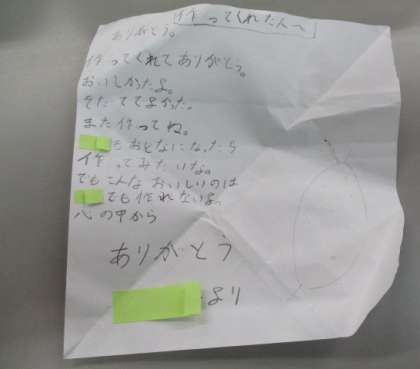 作ってくれた人へ
ありがとう。
作ってくれてありがとう。
おいしかたよ。
そだててよかった。
また作ってね。
もおとなになったら
作ってみたいな。
でもこんなおいしいのは
ても作れないよ。
心の中から
ありがとう
より